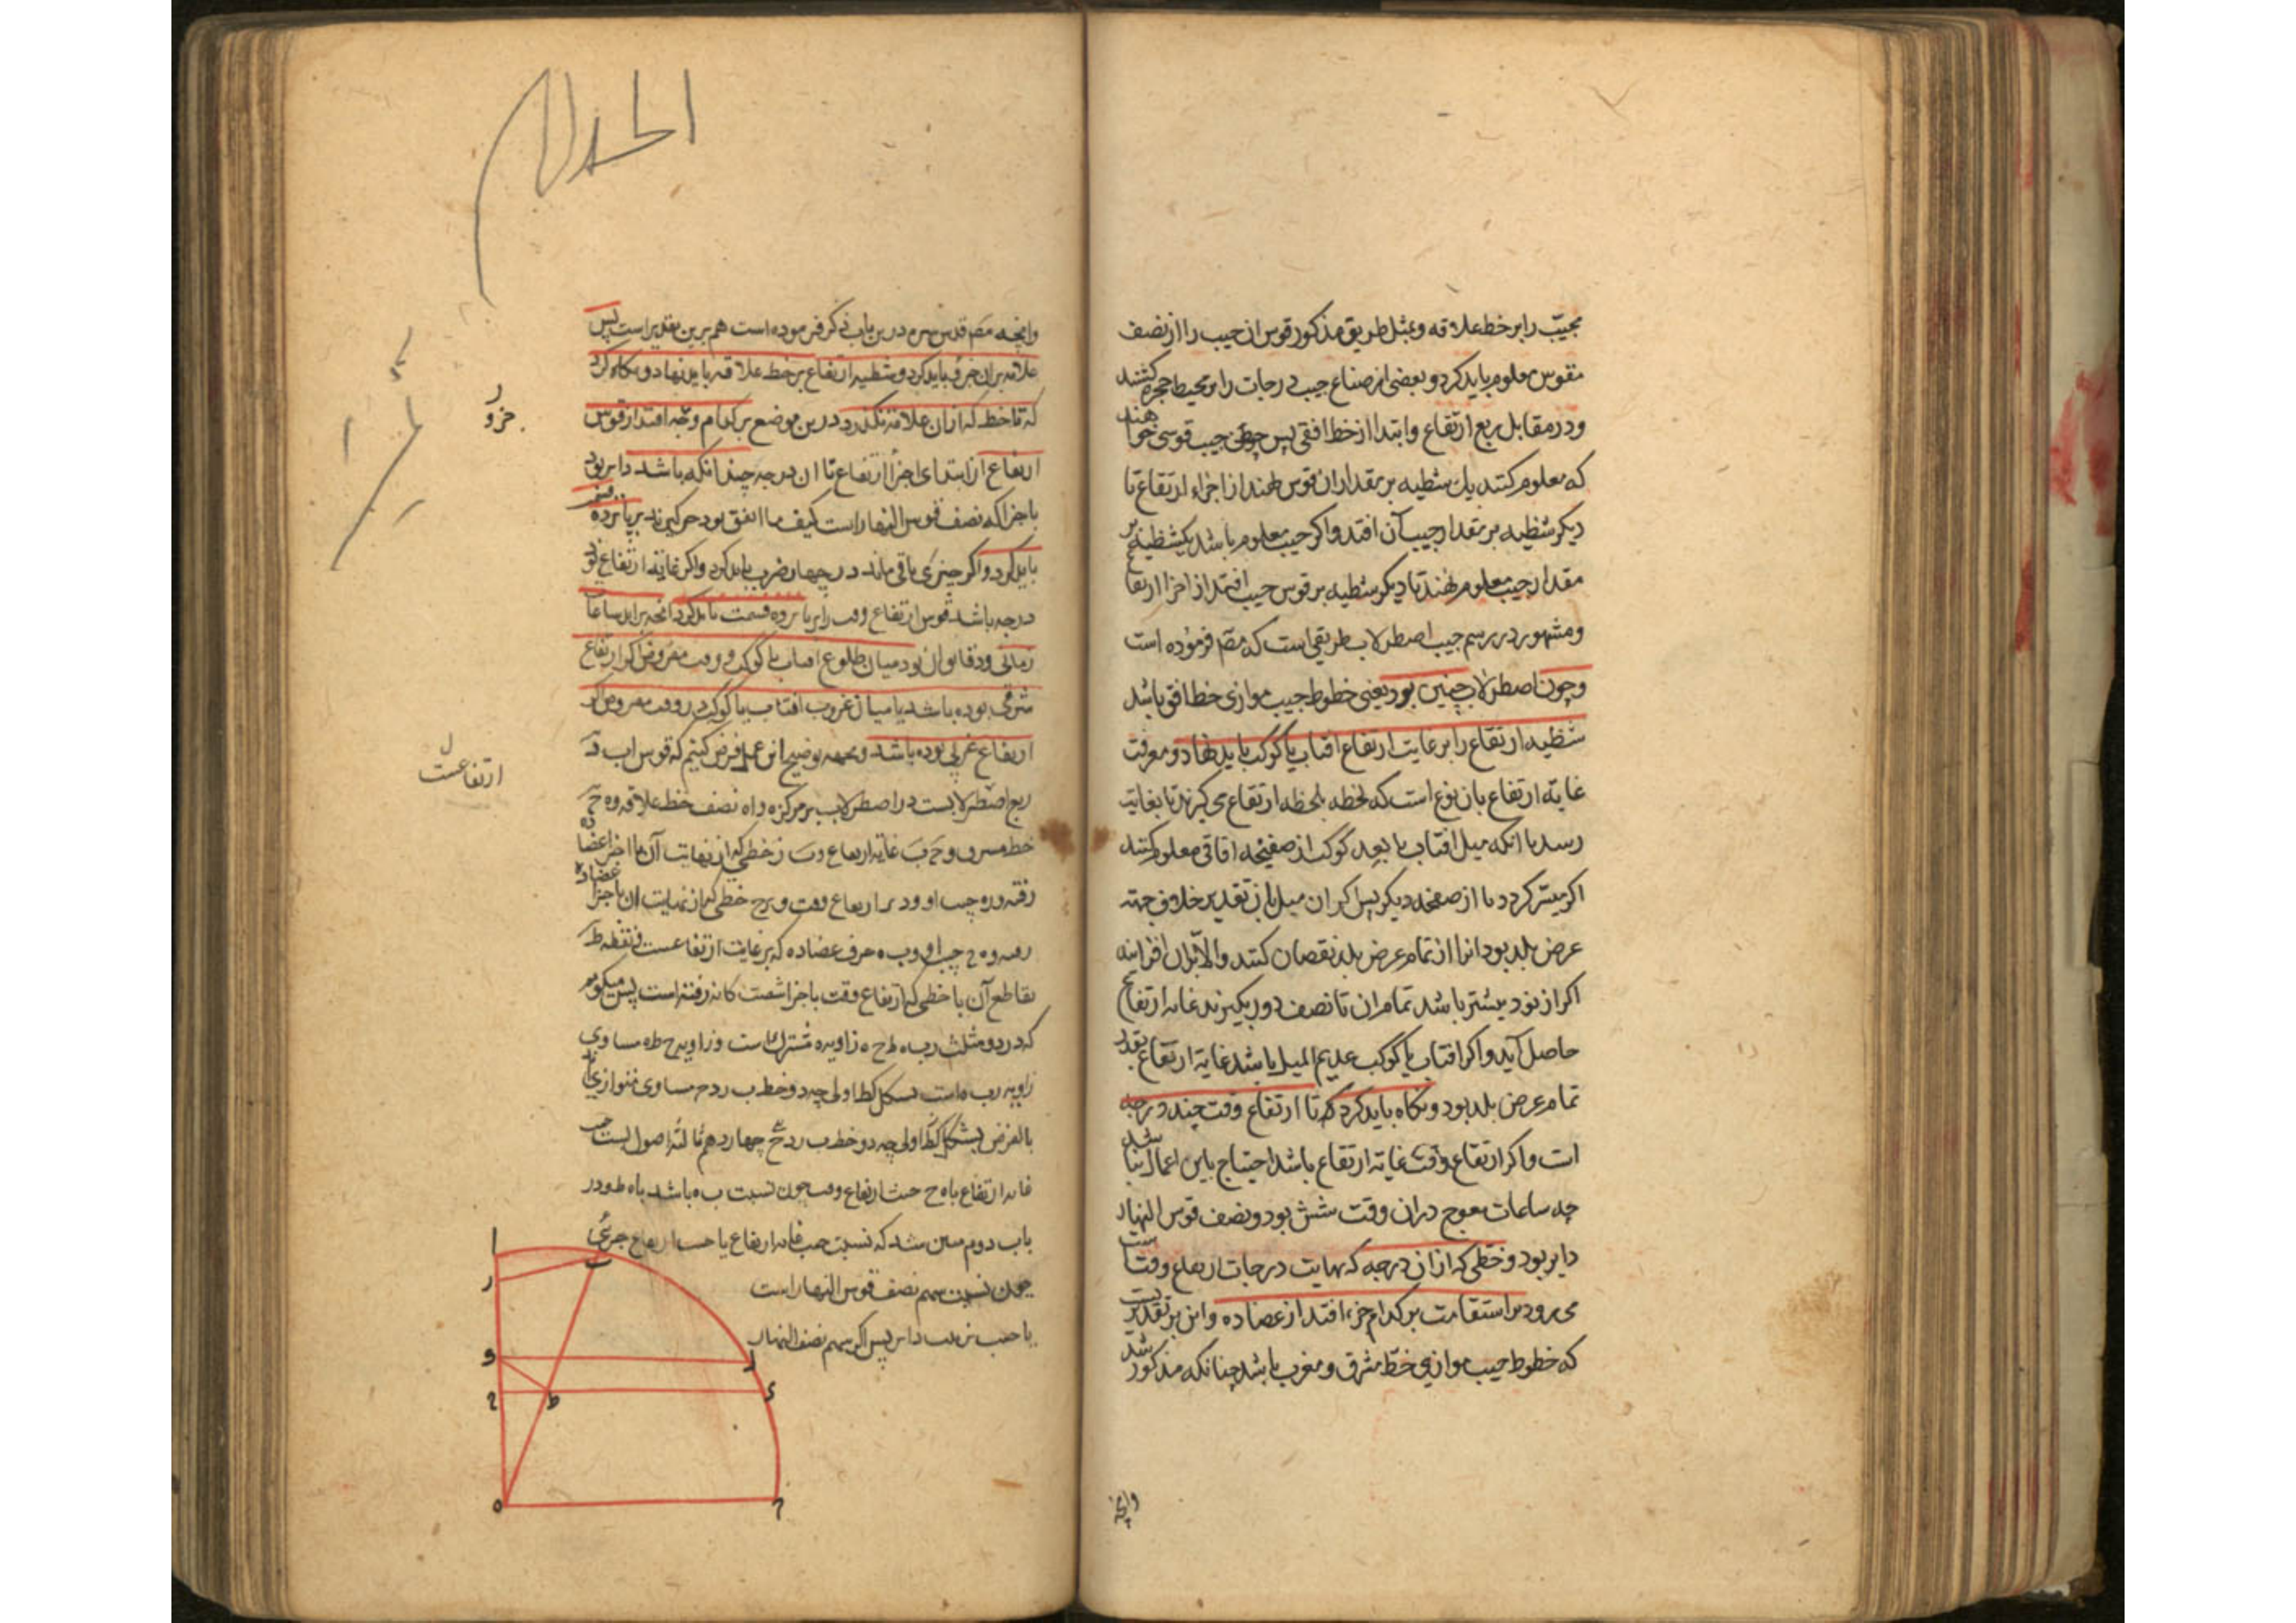 مجیّب را بر خط علاقه و بمثل طریق مذکور قوس ان جیب را از نصف
مقوس معلوم باید کرد و بعضی از صناع جیب درجات را بر محیط حجره کشند
و در مقابل ربع ارتفاع و ابتدا از خط افقی پس چون جیب قوسی خواهند
که معلوم کنند یک شظیه بر مقدار ان قوس نهند از اجزاء ارتفاع تا
دیگر شظیه بر مقدار جیب آن افتد و اکر جیب معلوم باشد یک شظیه بر
مقدار جیب معلوم نهند تا دیگر شظیه بر قوس جیب افتد از اجزا ارتفاع
و مشهور در رسم جیب اصطرلاب طریقی است که مصّ فرموده است
و چون اصطرلاب چنین بود یعنی خطوط جیب موازی خط افق باشد
شظیه ارتفاع را بر غایت ارتفاع افتاب یا کوکب باید نهاد و معرفت
غایة ارتفاع بان نوع است که لحظه بلحظه ارتفاع می کیرند تا بغایت
رسد یا انکه میل افتاب یا بعد کوکب از صفیحه افاقی معلوم کنند
اکر میسّر کردد یا از صفحه دیکر پس اکر ان میل بان تقدیر خلاف جهة
عرض بلد بود انرا از تمام عرض بلد نقصان کنند و الا بران افزایند
اکر از نود بیشتر باشد تمام ان تا نصف دور بکیرند غایة ارتفاع
حاصل آید و اکر افتاب یا کوکب عدیم المیل باشد غایة ارتفاع بقدر
تمام عرض بلد بود و نکاه باید کرد که تا ارتفاع وقت چند درجه
است و اکر ارتفاع وقت غایة ارتفاع باشد احتیاج باین اعمال نباشد
چه ساعات معوج دران وقت شش بود و نصف قوس النهار
دایر بود و خطی که از ان درجه که نهایت درجات ارتفاع وقتست
می رود بر استقامت بر کدام جزء افتد از عضاده و این بر تقدیریست
که خطوط جیب موازی خط مشرق و مغرب باشد چنانکه مذکور شد
وانچه
وانچه مصّ قدس سره درین باب ذکر فرموده است هم برین تقدیر است پس
علامه بران جزؤ باید کرد و شظیه ارتفاع بر خط علاقه باید نهاد و نکاه کرد
که تا خط که از ان علامه نکذرد درین موضع بر کدام افتد از قوس
ارتفاع از ابتدای اجزأ ارتفاع تا ان درجه چندانکه باشد دایر بود
باجزا که نصف قوس النهار است کیف ما اتفق بود بر پانزده قسمت
باید کرد و اکر چیزی باقی ماند در چهار ضرب باید کرد و اکر غایة ارتفاع نود
درجه باشد قوس ارتفاع وقت را بر پانزده قسمت باید کرد انچه براید ساعات
زمانی و دقایق ان بود میان طلوع افتاب یا کوکب و وقت مفروض اکر ارتفاع
شرقی بوده باشد یا میان غروب افتاب یا کوکب و وقت مفروض اکر
ارتفاع غربی بوده باشد و بجهة توضیح این عمل فرض کنیم که قوس اب
ربع اصطرلابست در اصطرلاب بر مرکز ه و اه نصف خط علاقه و ه ح
خط مشرق و ح ب غایة ارتفاع و ب ز خطی که از نهایت آن
رفته و ره جیب او و در ارتفاع وقت و خطی که از نهایت ان باجزا عضاده
رفته و ه ح جیب او و ب ه حرف عضاده که بر غایت ارتفاعست و نقطه ط
تقاطع آن با خطی که ارتفاع وقت باجزا شصت کانه رفته است پس میکویم
که در دو مثلث رب ه ط ح ه زاویه ه مشترک است و زاویه ح ط ه مساوی
زاویه رب ه است بشکل کط اولی چه دو خط ب ر د ح متوازی
بالفرض بشکل کط اولی چه دو خط ب ر د ح چهاردهم ثالثه اصول است
غایة ارتفاع با ه ح جیب ارتفاع وقت چون نسبت ب ه باشد با ه ط و در
باب دوم مبین شد که نسبت جیب غایة ارتفاع با جیب ارتفاع جزئی
چون نسبت سهم نصف قوس النهار است
با جیب ترتیب دایر پس اکر سهم نصف النهار
جزو
ارتفاعست
ا
ب
ر
و
د
ح
ط
ه